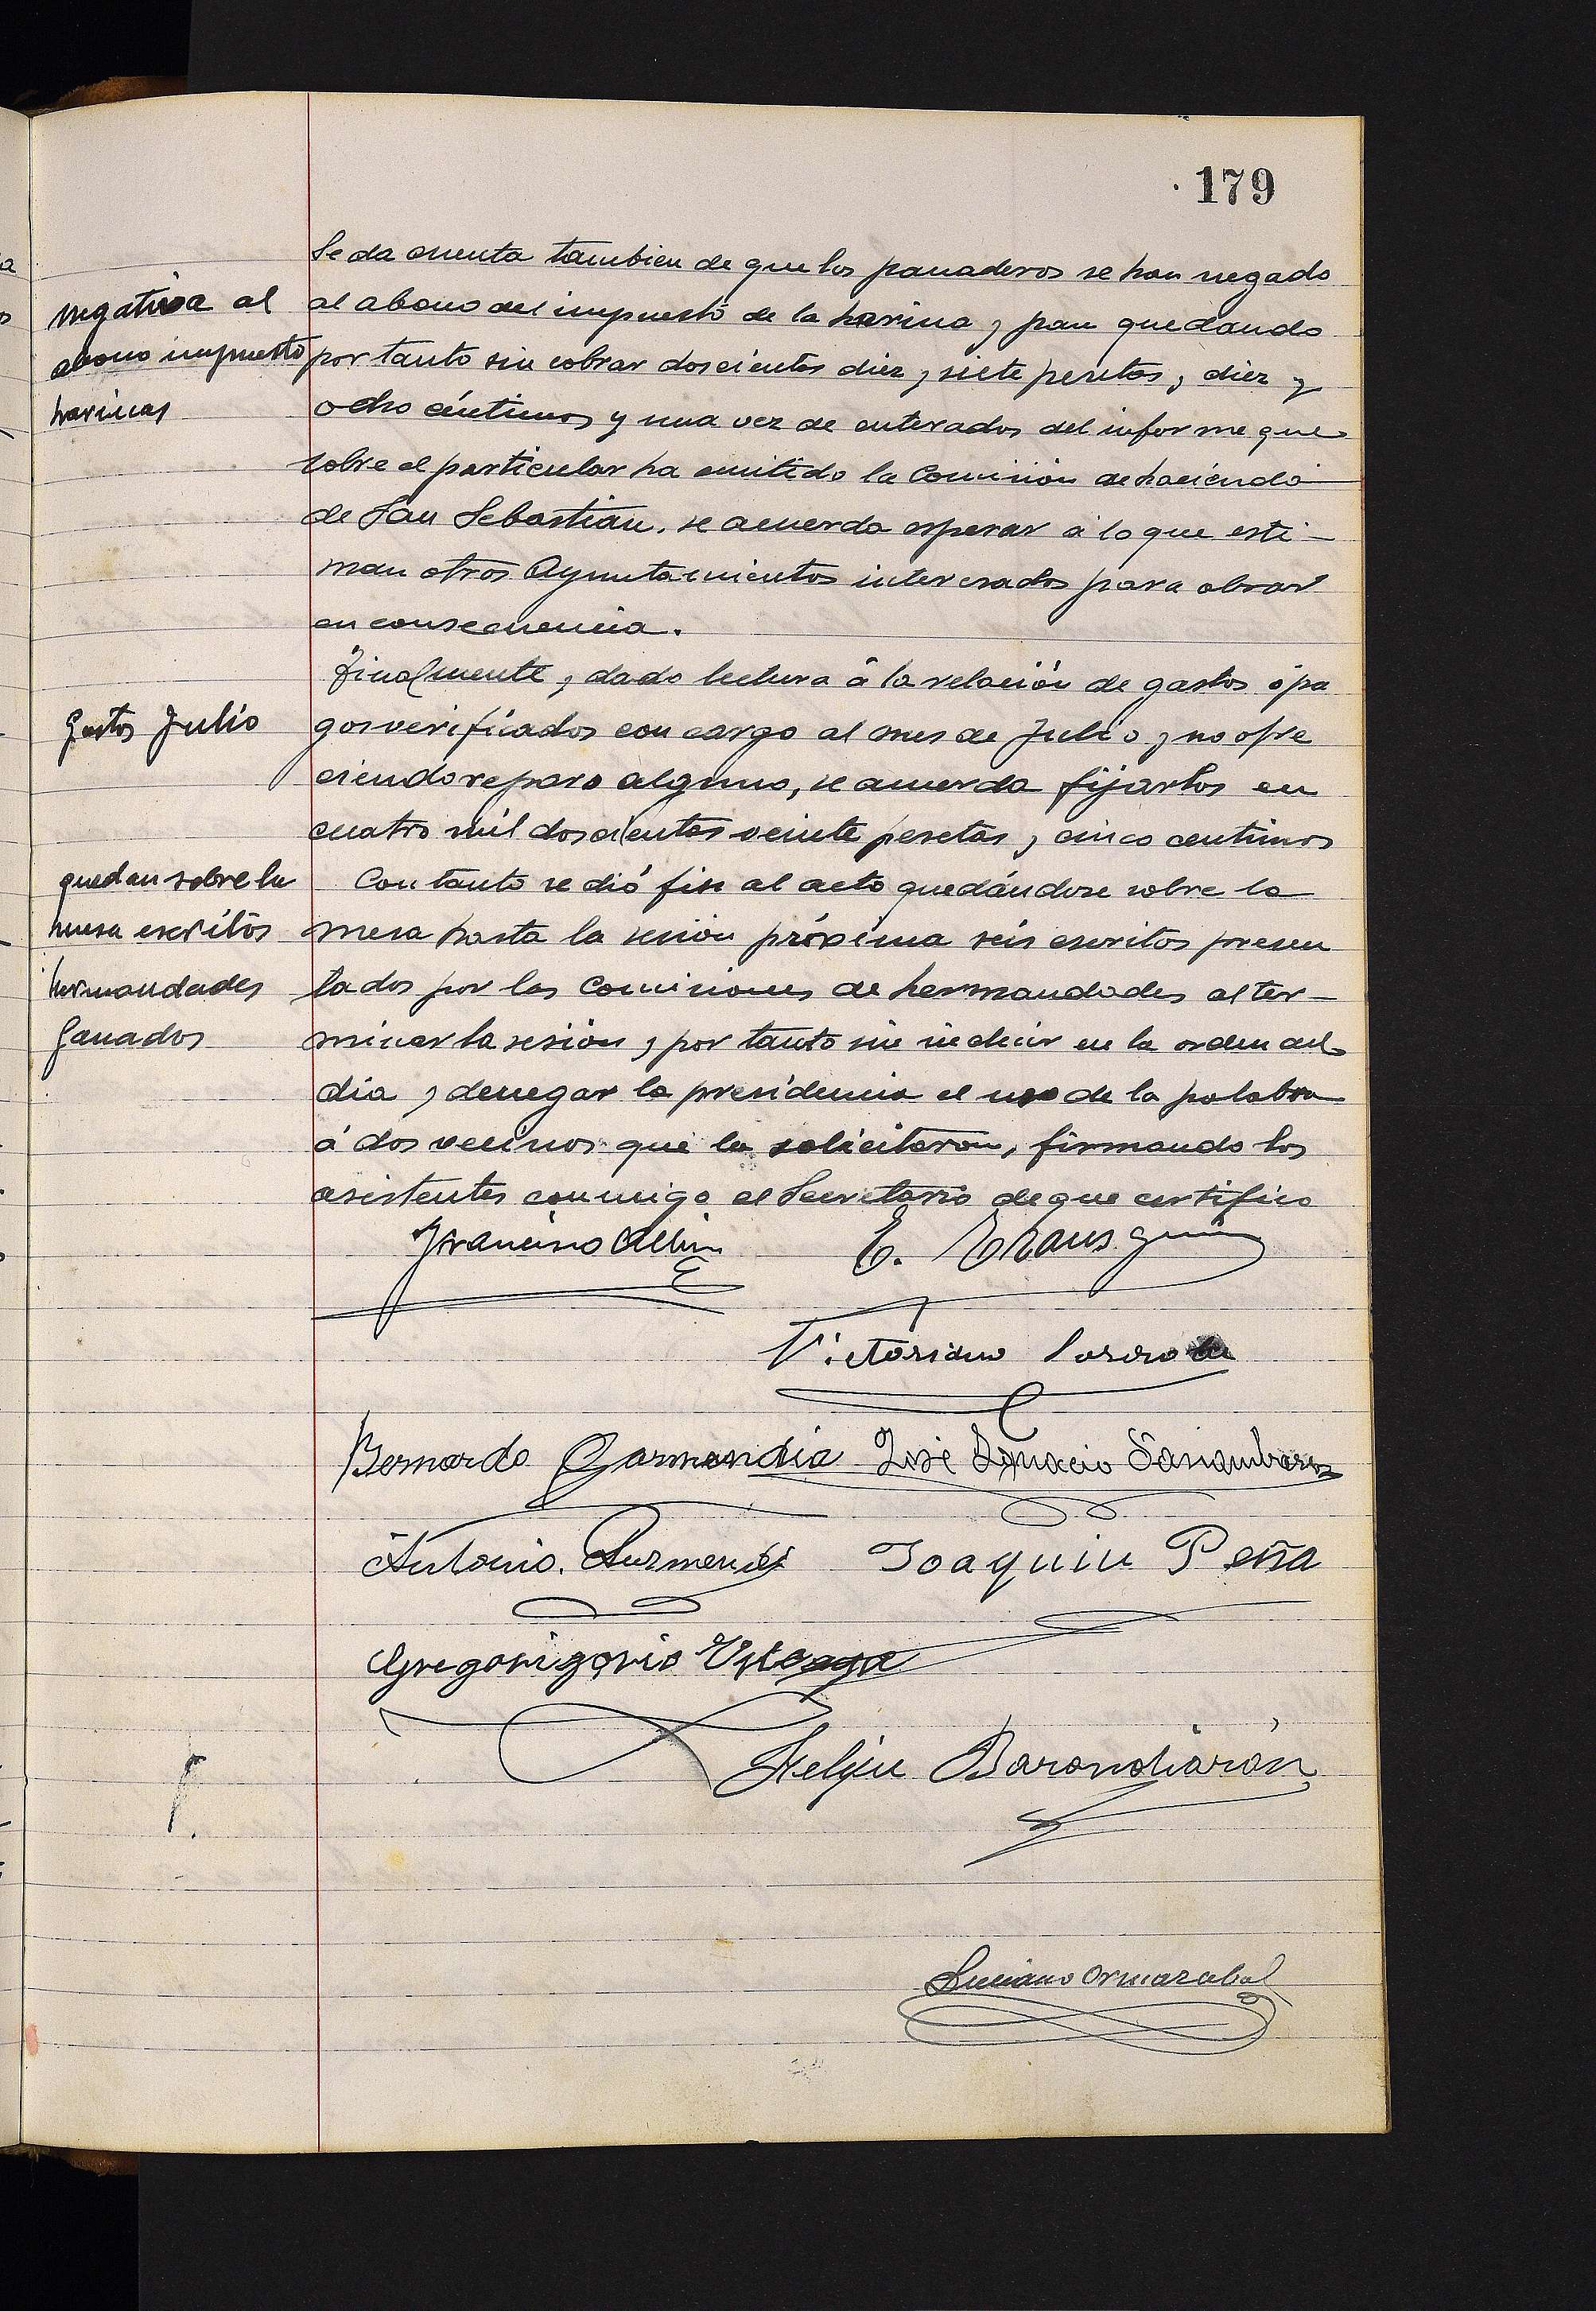 179
Se da cuenta tambien de que los panaderos se han negado
al abono del impuesto de la harina y pan quedando
por tanto sin cobrar doscientas diez y siete pesetas, diez y
ocho céntimos y una vez de enterados del informe que
sobre el particular ha emitido la Comision de hacienda
de San Sebastián, se acuerda esperar á lo que esti-
man otros Ayuntamientos interesados para obrar
en consecuencia.
negativa al
abono impuesto
harinas
Finalmente, dado lectura á la relación de gastos ó pa
gos verificados con cargo al mes de Julio y no ofre
ciendo reparo alguno, se acuerda fijarlos en
cuatro mil doscientas veinte pesetas y cinco centimos
Gastos Julio
Con tanto se dió fin al acto quedándose sobre la
mesa hasta la sesión próxima seis escritos presen
tados por las Comisiones de hermandades al ter-
minar la sesión y por tanto sin incluir en la orden del
dia y denegar la presidencia el uso de la palabra
á dos vecinos que la solicitaron, firmando los
asistentes conmigo el Secretario de que certifico
quedan sobre la
mesa escritos
hermandades
ganados
Francisco
E.
Victoriano
Bernardo Garmendia José Ignacio
Antonio Joaquin Peña
Gregorigorio
Felix Barandiarán
Luciano Ormazabal